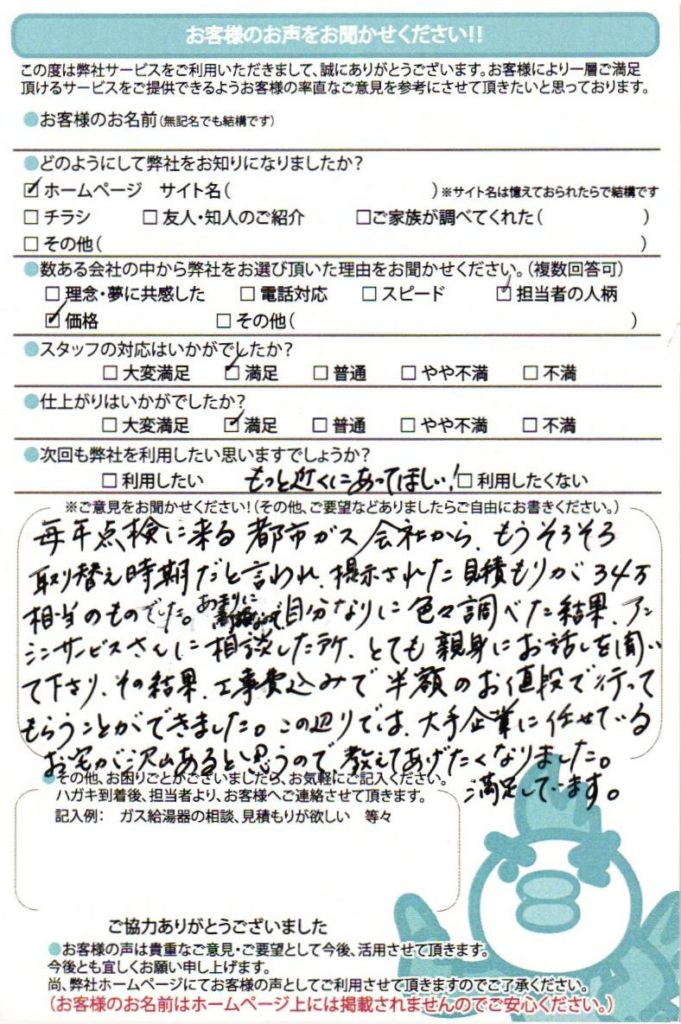 お客様のお声をお聞かせください!!
この度は弊社サービスをご利用いただきまして、誠にありがとうございます。お客様により一層ご満足
頂けるサービスをご提供できるようお客様の率直なご意見を参考にさせて頂きたいと思っております。
●お客様のお名前(無記名でも結構です)
●どのようにして弊社をお知りになりましたか?
☑ホームページ サイト名( )※サイト名は憶えておられたらで結構です
□チラシ □友人・知人のご紹介 □ご家族が調べてくれた( )
□その他( )
●数ある会社の中から弊社をお選び頂いた理由をお聞かせください。(複数回答可)
□理念・夢に共感した □電話対応 □スピード ☑担当者の人柄
☑価格 □その他( )
●スタッフの対応はいかがでしたか?
□大変満足 ☑満足 □普通 □やや不満 □不満
●仕上がりはいかがでしたか?
□大変満足 ☑満足 □普通 □やや不満 □不満
●次回も弊社を利用したい思いますでしょうか?
□利用したい もっと近くにあってほしい! □利用したくない
※ご意見をお聞かせください!(その他、ご要望などありましたらご自由にお書きください。)
毎年点検に来る都市ガス会社から、もうそろそろ
取り替え時期だと言われ、提示された見積もりが34万
相当のものでした。あまりに高額なので自分なりに色々調べた結果、アン
シンサービスさんに相談した所、とても親身にお話しを聞い
て下さり、その結果、工事費込みで半額のお値段で行って
もらうことができました。この辺りでは、大手企業に任せている
お宅が沢山あると思うので、教えてあげたくなりました。
満足しています。
●その他、お困りごとがございましたら、お気軽にご記入ください。
ハガキ到着後、担当者より、お客様へご連絡させて頂きます。
記入例: ガス給湯器の相談、見積もりが欲しい 等々
ご協力ありがとうございました
●お客様の声は貴重なご意見・ご要望として今後、活用させて頂きます。
今後とも宜しくお願い申し上げます。
尚、弊社ホームページにてお客様の声としてご利用させて頂きますのでご了承ください。
(お客様のお名前はホームページ上には掲載されませんのでご安心ください。)